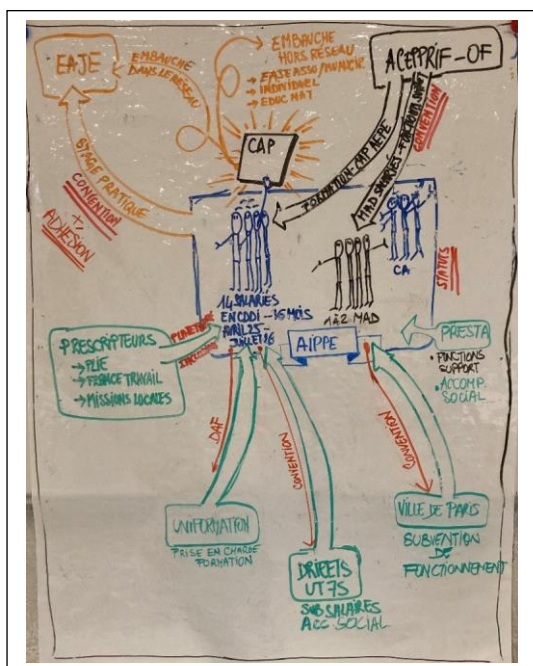 EAJE
EMBAUCHE
DANS LE RÉSEAU
EMBAUCHE
HORS RÉSEAU
→ EAJE ASSO/MUNICIP
→ INDIVIDUEL
→ EDUC NAT
ACEPPRIF-OF
CAP
STAGE PRATIQUE
CONVENTION
+
ADHÉSION
FORMATION-CAP AEPE
MAD SALARIÉS
CONVENTION
CA
STATUTS
14 SALARIÉS
EN CDDI - 16 MOIS
AVRIL 25 -
JUILLET 26
1 à 2 MAD
AIPPE
PRESCRIPTEURS
→ PLIE
→ FRANCE TRAVAIL
→ MISSIONS LOCALES
PRESTA
• FONCTIONS
SUPPORT
• ACCOMP.
SOCIAL
DAF
CONVENTION
CONVENTION
UNIFORMATION
PRISE EN CHARGE
FORMATION
DRIEETS
UT 75
SUB SALAIRES
ACC. SOCIAL
VILLE DE PARIS
SUBVENTION
DE
FONCTIONNEMENT